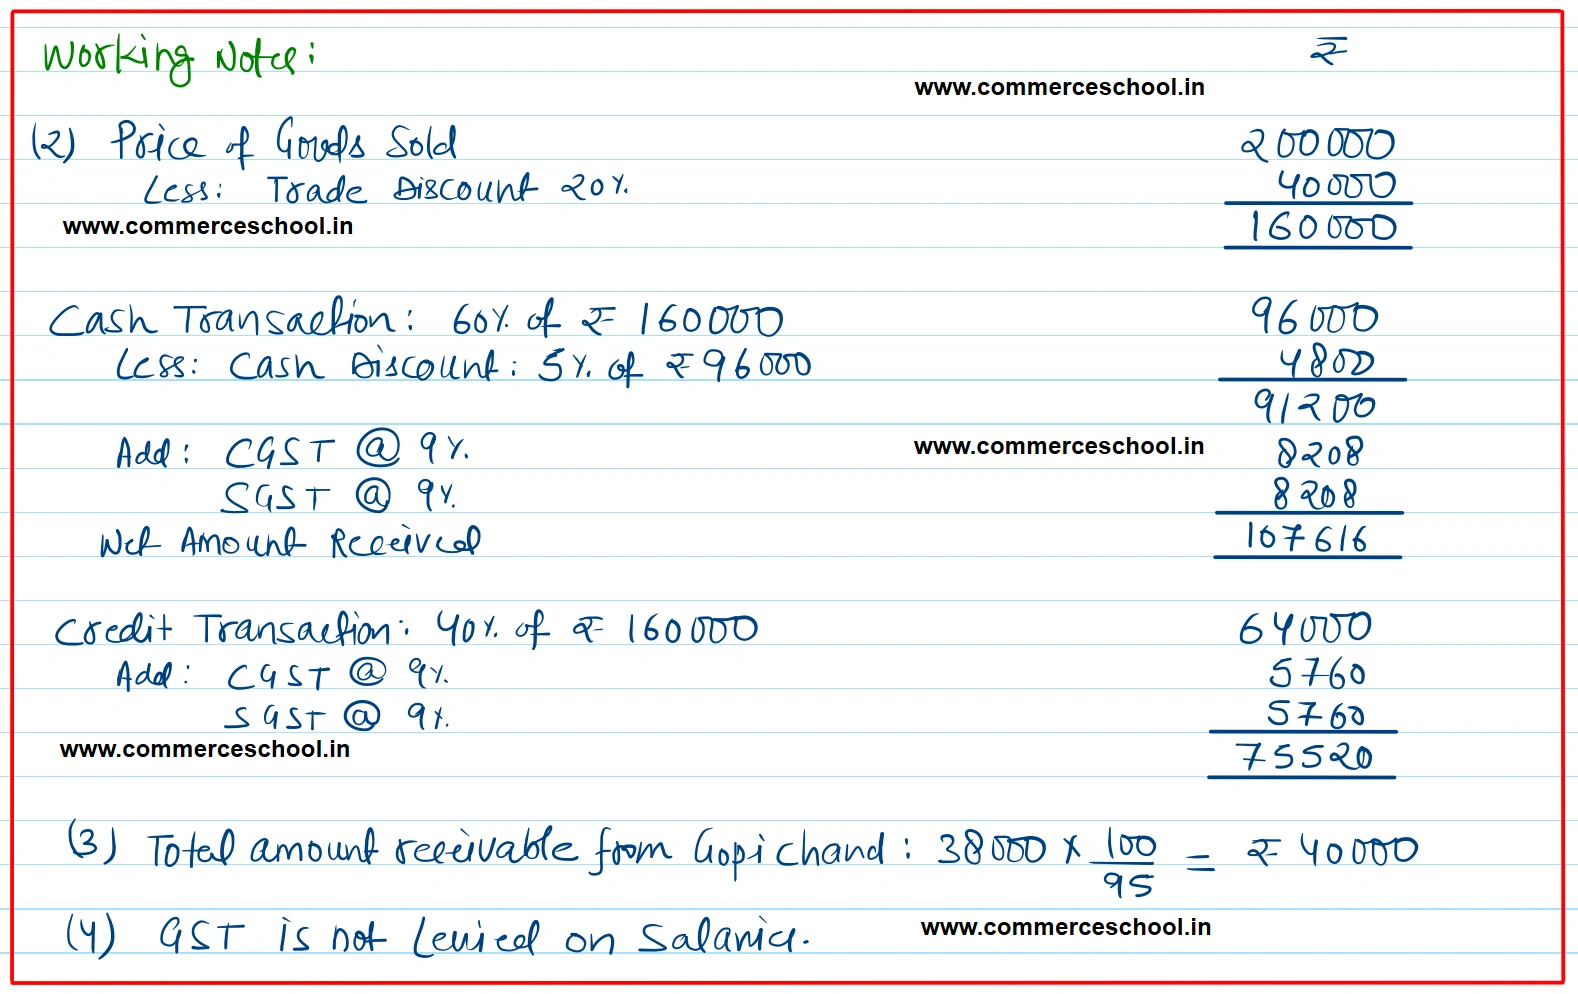 Working Notes:
₹
www.commerceschool.in
(2) Price of Goods Sold 200000
Less: Trade Discount 20% 40000
www.commerceschool.in
160000
Cash Transaction: 60% of ₹ 160000 96000
Less: Cash Discount: 5% of ₹ 96000 4800
91200
Add: CGST @ 9% www.commerceschool.in 8208
SGST @ 9% 8208
Net Amount Received 107616
Credit Transaction: 40% of ₹ 160000 64000
Add: CGST @ 9% 5760
SGST @ 9% 5760
www.commerceschool.in
75520
(3) Total amount receivable from Gopichand: 38000 × 100/95 = ₹ 40000
(4) GST is not Levied on Salaries.
www.commerceschool.in